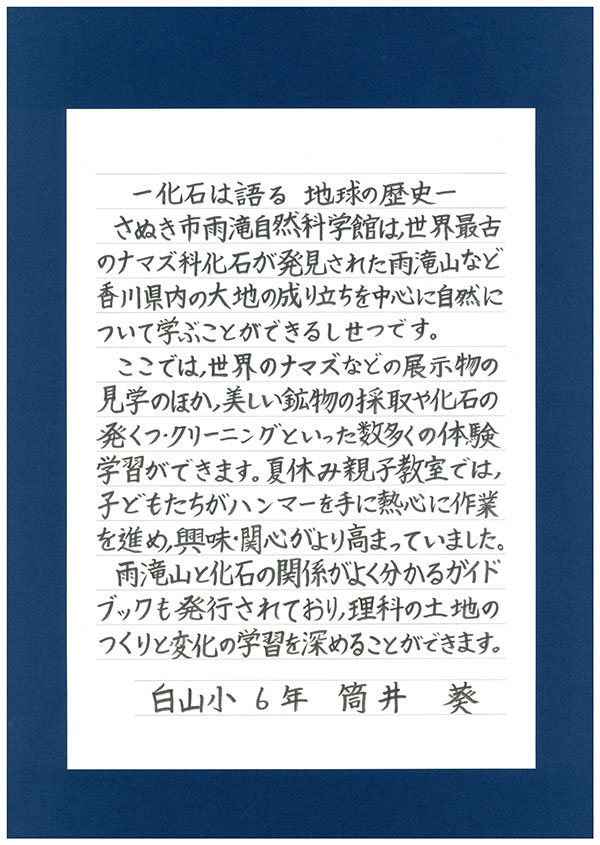 ー化石は語る 地球の歴史ー
さぬき市雨滝自然科学館は,世界最古
のナマズ科化石が発見された雨滝山など
香川県内の大地の成り立ちを中心に自然に
ついて学ぶことができるしせつです。
ここでは,世界のナマズなどの展示物の
見学のほか,美しい鉱物の採取や化石の
発くつ・クリーニングといった数多くの体験
学習ができます。夏休み親子教室では,
子どもたちがハンマーを手に熱心に作業
を進め,興味・関心がより高まっていました。
雨滝山と化石の関係がよく分かるガイド
ブックも発行されており,理科の土地の
つくりと変化の学習を深めることができます。
白山小 6年 筒井 葵